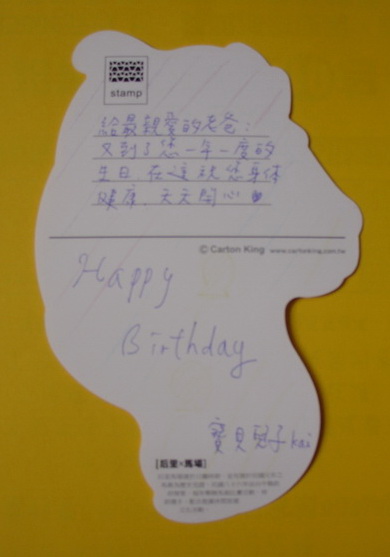 stamp
給最親愛的老爸：
又到了您一年一度的
生日，在這祝您身体
健康，天天開心
© Carton King www.cartonking.com.tw
Happy
Birthday
寶貝兒子 kai
[后里·馬場]